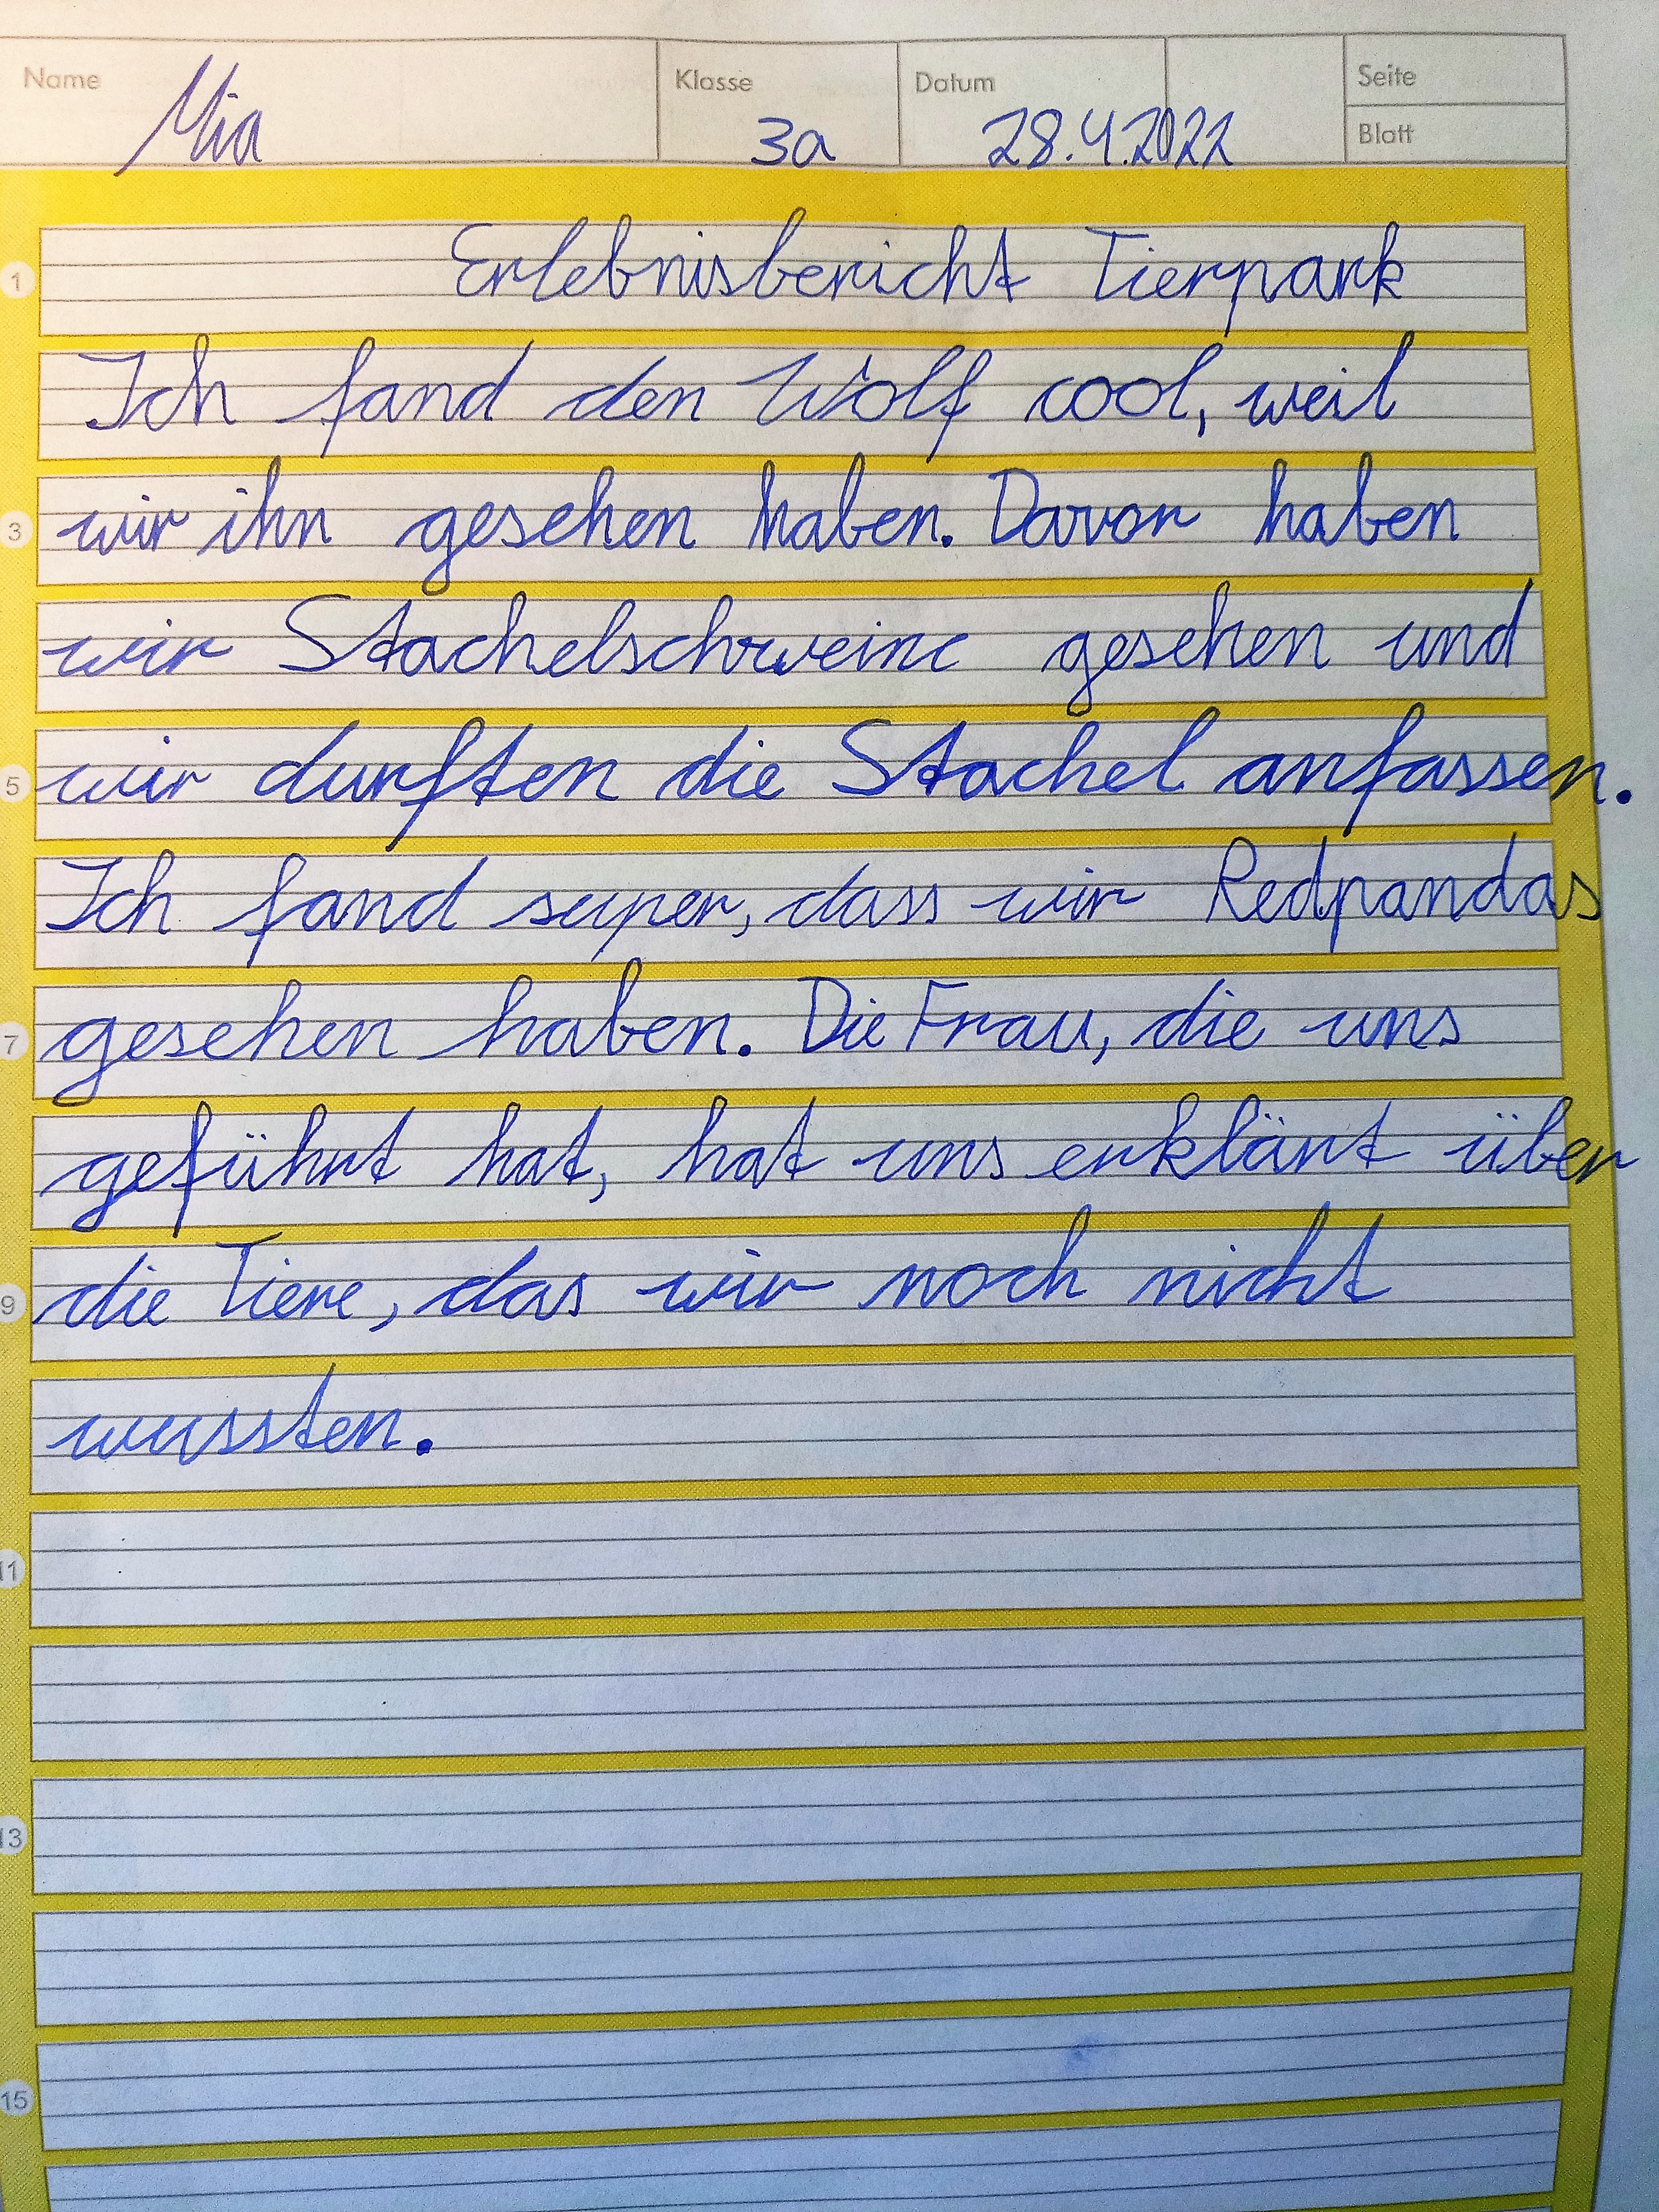 Name Klasse Datum Seite
Mia 3a 28.4.2022 Blatt
1 Erlebnisbericht Tierpark
Ich fand den Wolf cool, weil
3 wir ihn gesehen haben. Davor haben
wir Stachelschweine gesehen und
5 wir durften die Stachel anfassen.
Ich fand super, dass wir Redpandas
7 gesehen haben. Die Frau, die uns
geführt hat, hat uns erklärt über
9 die Tiere, das wir noch nicht
wussten.
11
13
15